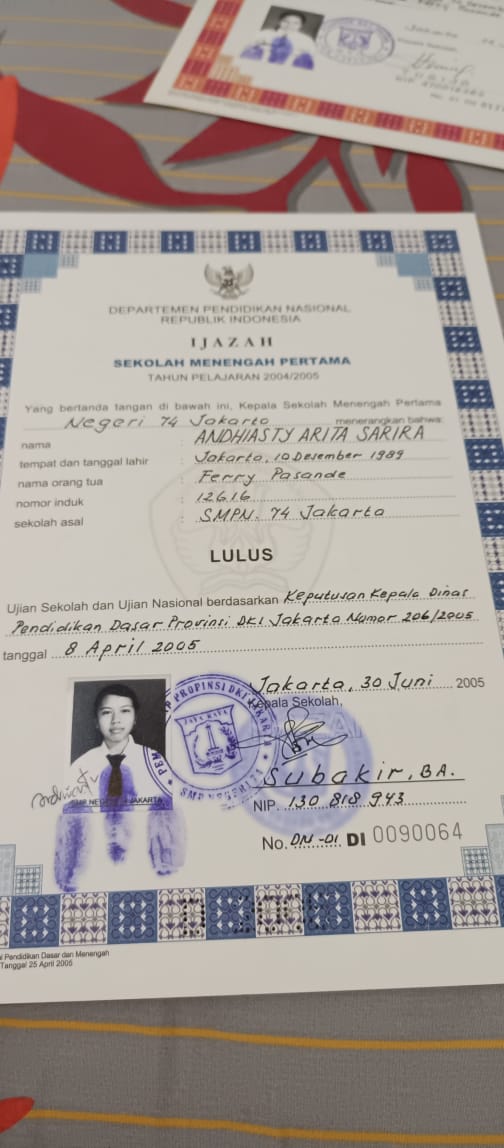 DEPARTEMEN PENDIDIKAN NASIONAL
REPUBLIK INDONESIA
IJAZAH
SEKOLAH MENENGAH PERTAMA
TAHUN PELAJARAN 2004/2005
Yang bertanda tangan di bawah ini, Kepala Sekolah Menengah Pertama
Negeri 74 Jakarta menerangkan bahwa:
nama : ANDHIASTY ARITA SARIRA
tempat dan tanggal lahir : Jakarta, 10 Desember 1989
nama orang tua : Ferry Pasande
nomor induk : 12616
sekolah asal : SMPN. 74 Jakarta
LULUS
Ujian Sekolah dan Ujian Nasional berdasarkan Keputusan Kepala Dinas
Pendidikan Dasar Provinsi DKI Jakarta Nomor 206/2005
tanggal 8 April 2005
Jakarta, 30 Juni 2005
Kepala Sekolah,
PROPINSI DKI JAKARTA
JAYA RAYA
Subakir, BA.
NIP. 130 818 943
No. DN-01 DI 0090064
Pendidikan Dasar dan Menengah
Tanggal 25 April 2005